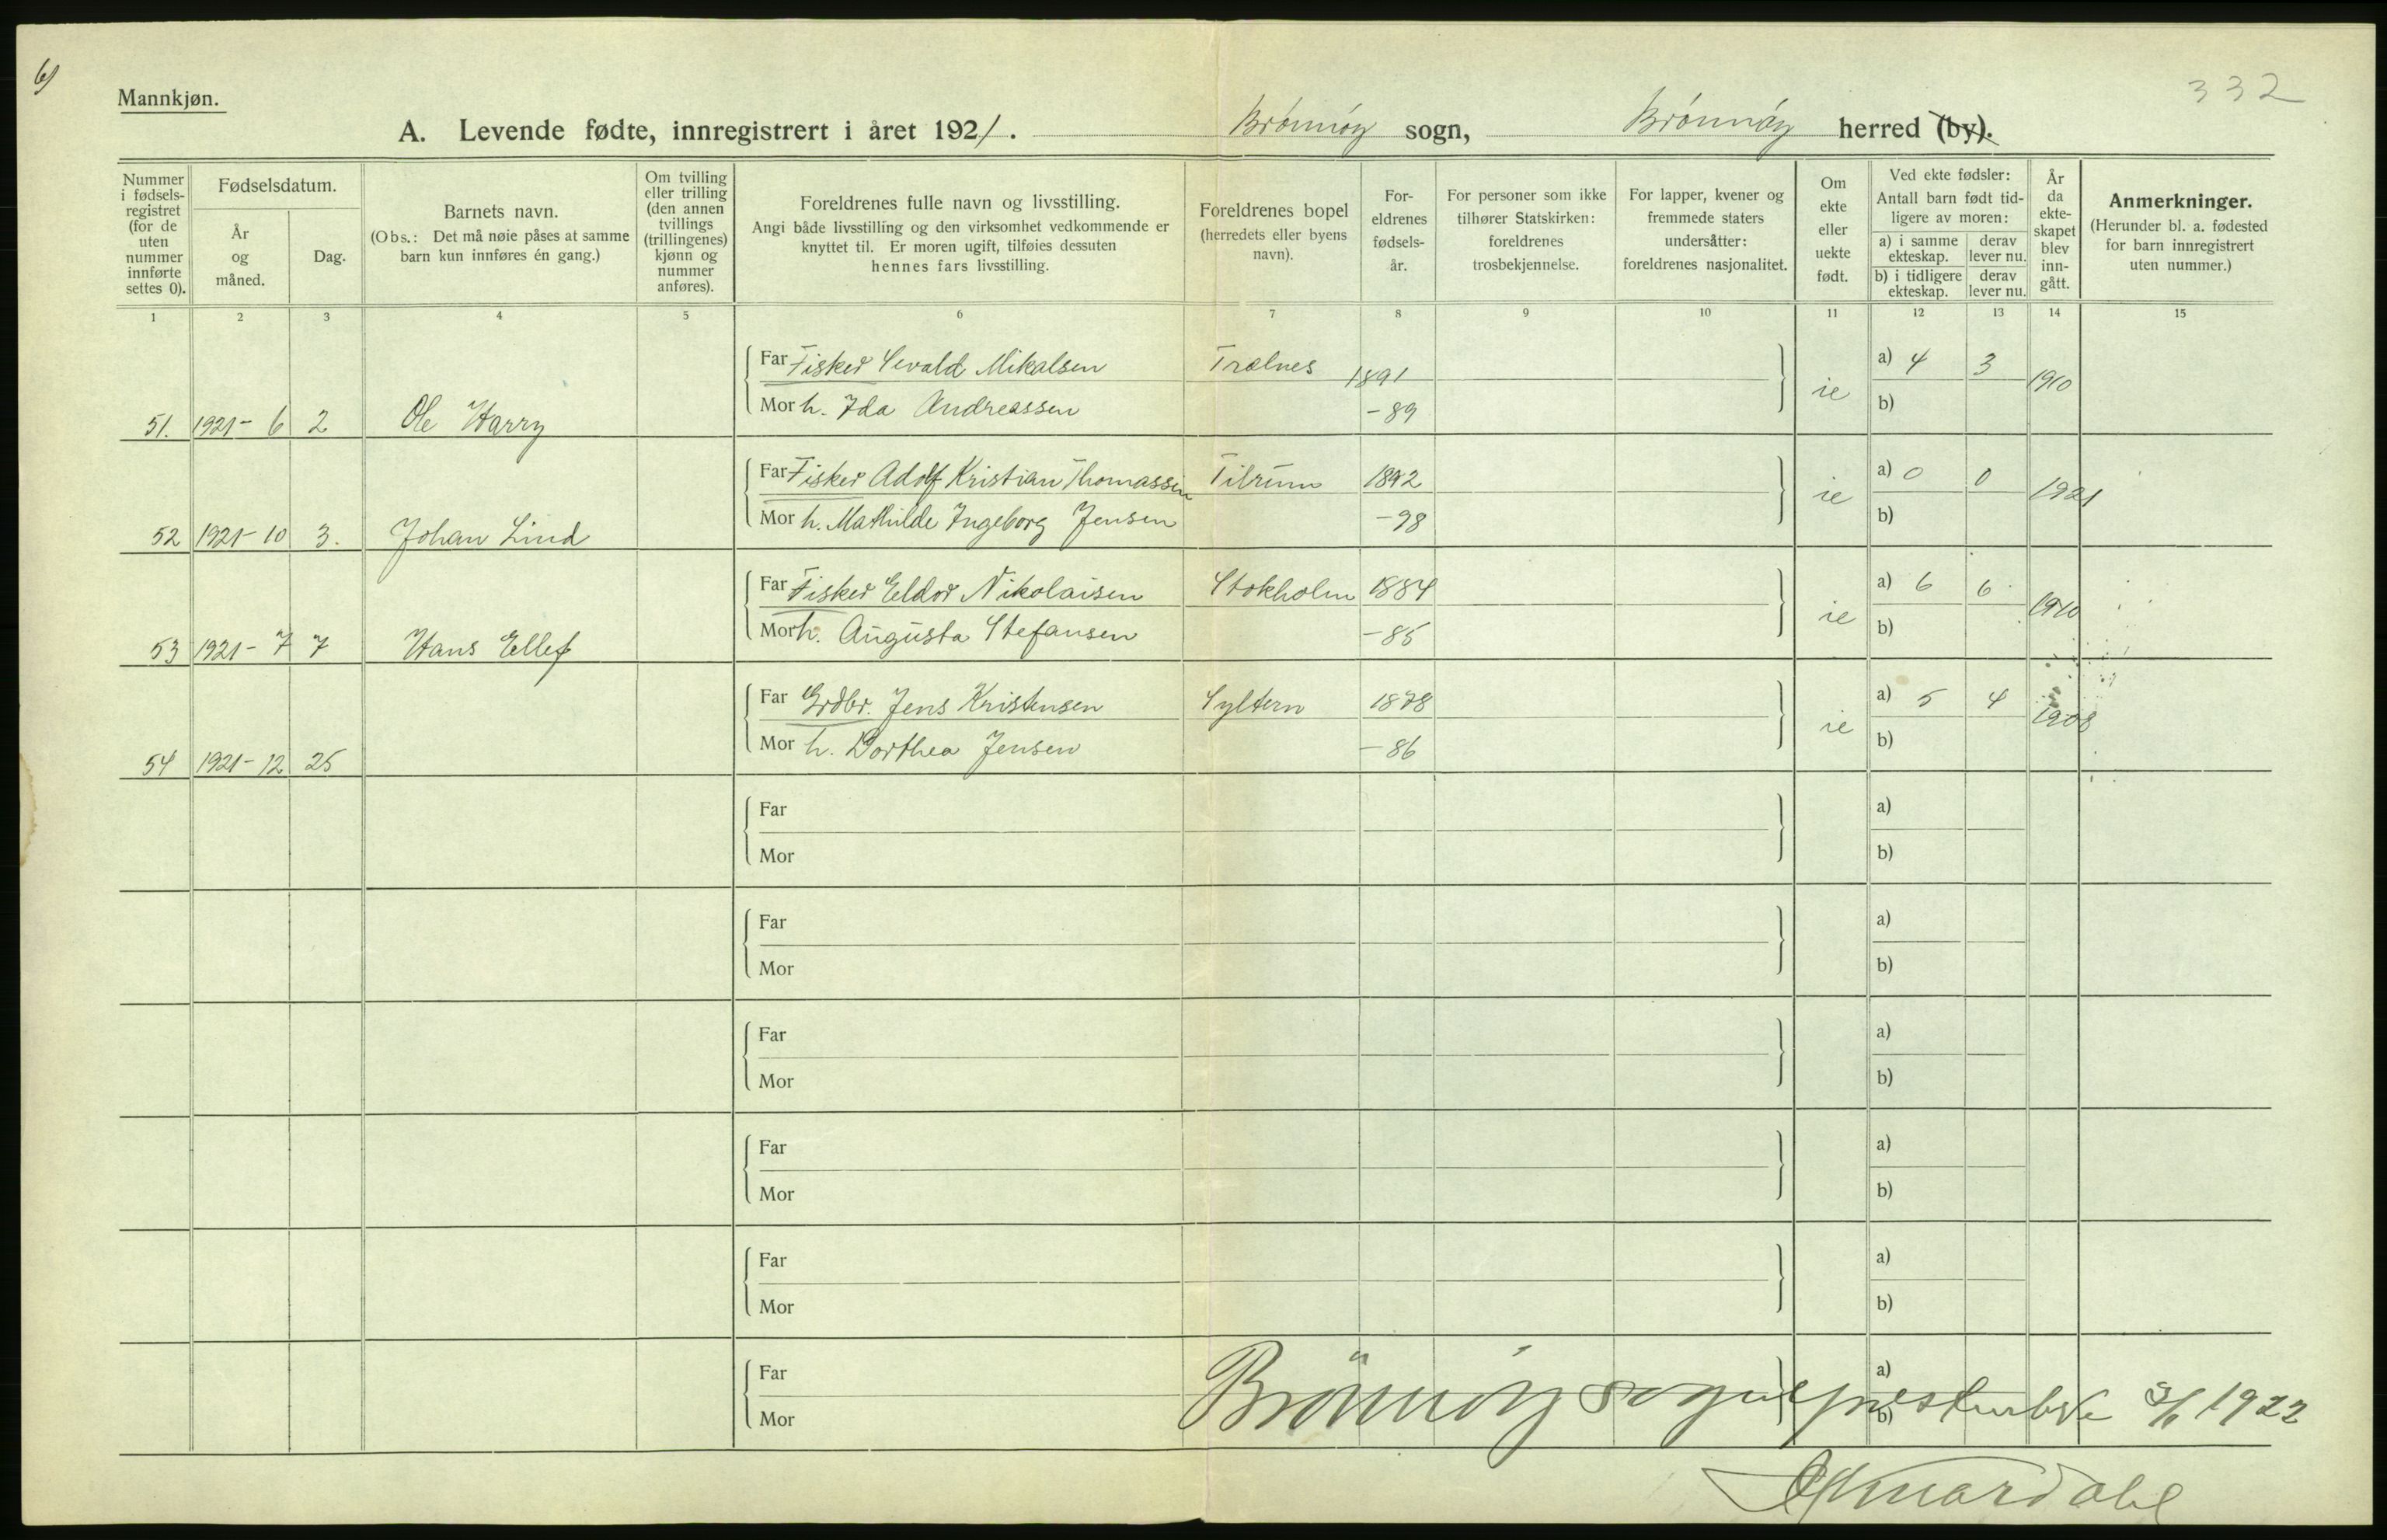 6)
332
Mannkjøn.
A. Levende fødte, innregistrert i året 1921. Brönnöy sogn, Brönnöy herred (by).
Nummer i fødsels-registret (for de uten nummer innførte settes 0).
Fødselsdatum.
År og måned.
Dag.
Barnets navn.
(Obs.: Det må nøie påses at samme barn kun innføres én gang.)
Om tvilling eller trilling (den annen tvillings (trillingenes) kjønn og nummer anføres).
Foreldrenes fulle navn og livsstilling.
Angi både livsstilling og den virksomhet vedkommende er knyttet til. Er moren ugift, tilføies dessuten hennes fars livsstilling.
Foreldrenes bopel (herredets eller byens navn).
For-eldrenes fødsels-år.
For personer som ikke tilhører Statskirken: foreldrenes trosbekjennelse.
For lapper, kvener og fremmede staters undersåtter: foreldrenes nasjonalitet.
Om ekte eller uekte født.
Ved ekte fødsler:
Antall barn født tid-ligere av moren:
a) i samme ekteskap.
derav lever nu.
b) i tidligere ekteskap.
derav lever nu.
År da ekte-skapet blev inn-gått.
Anmerkninger.
(Herunder bl. a. fødested for barn innregistrert uten nummer.)
1 2 3 4 5 6 7 8 9 10 11 12 13 14 15
Far Fisker Sevald Mikalsen Trælnes 1891 a) 4 3
51. 1921-6 2 Ole Harry Mor h. Ida Andreassen -89 ie b) 1910
Far Fisker Adolf Kristian Thomassen Tilrum 1892 a) 0 0
52 1921-10 3. Johan Lind Mor h. Mathilde Ingeborg Jensen -98 ie b) 1921
Far Fisker Eldor Nikolaisen Stokholm 1884 a) 6 6
53 1921-7 7 Hans Ellef Mor h. Augusta Stefansen -85 ie b) 1910
Far Grdbr. Jens Kristensen Syltern 1878 a) 5 4
54 1921-12 25 Mor h. Dorthea Jensen -86 ie b) 1908
Far a)
Mor b)
Far a)
Mor b)
Far a)
Mor b)
Far a)
Mor b)
Far a)
Mor b)
Far a)
Mor b)
Brönnöy sogneprestembede 3/1 1922